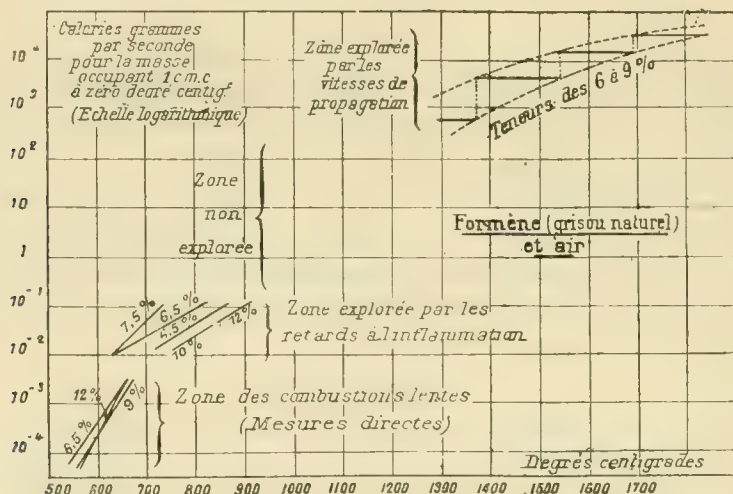 Calories grammes
par seconde
pour la masse
occupant 1 c.m.c
à zéro degré centigr
(Echelle logarithmique)
Zône explorée
par les
vitesses de
propagation
Teneurs des 6 à 9 %
Zone
non
explorée
Formène (grisou naturel)
et air
7,5 %
6,5 %
4,5 %
10 %
12 %
Zone explorée par les
retards à l'inflammation
12 %
6,5 %
9 %
Zone des combustions lentes
(Mesures directes)
Degrés centigrades
10⁴
10³
10²
10
1
10⁻¹
10⁻²
10⁻³
10⁻⁴
500 600 700 800 900 1000 1100 1200 1300 1400 1500 1600 1700